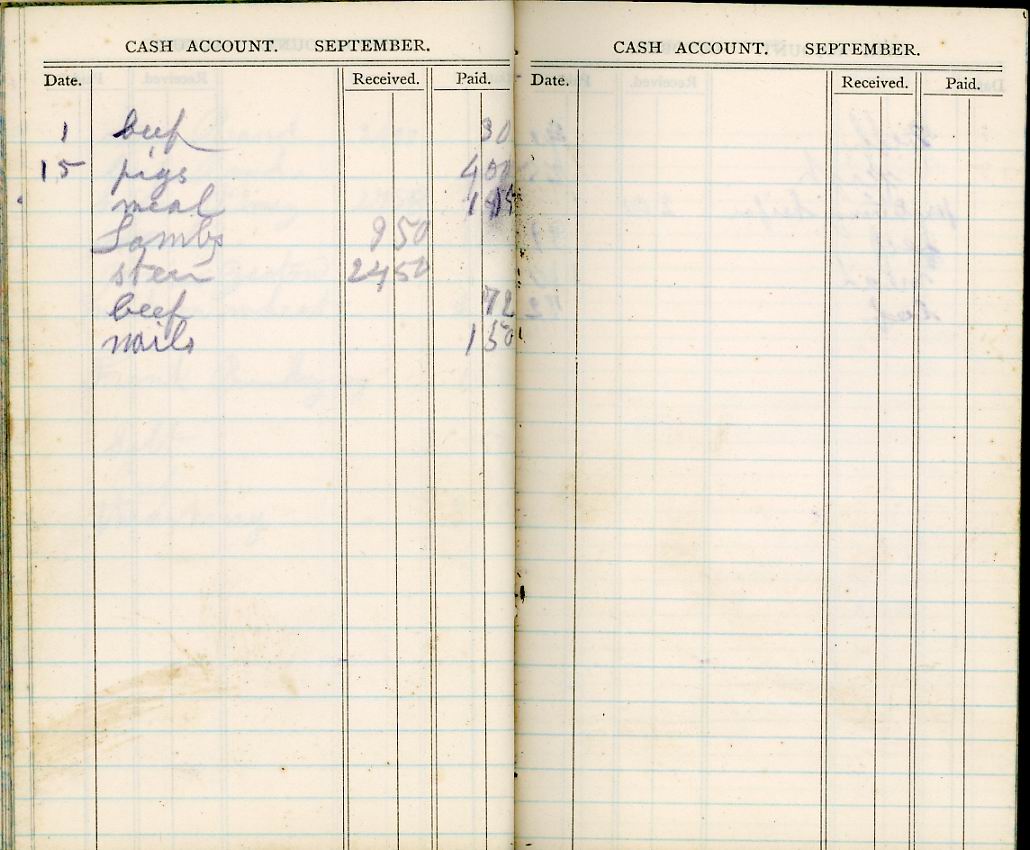 CASH ACCOUNT. SEPTEMBER.
Date. Received. Paid.
1 beef 30
15 pigs 400
meal
Lambs 950
steer 2450
beef 72
nails 150
CASH ACCOUNT. SEPTEMBER.
Date. Received. Paid.